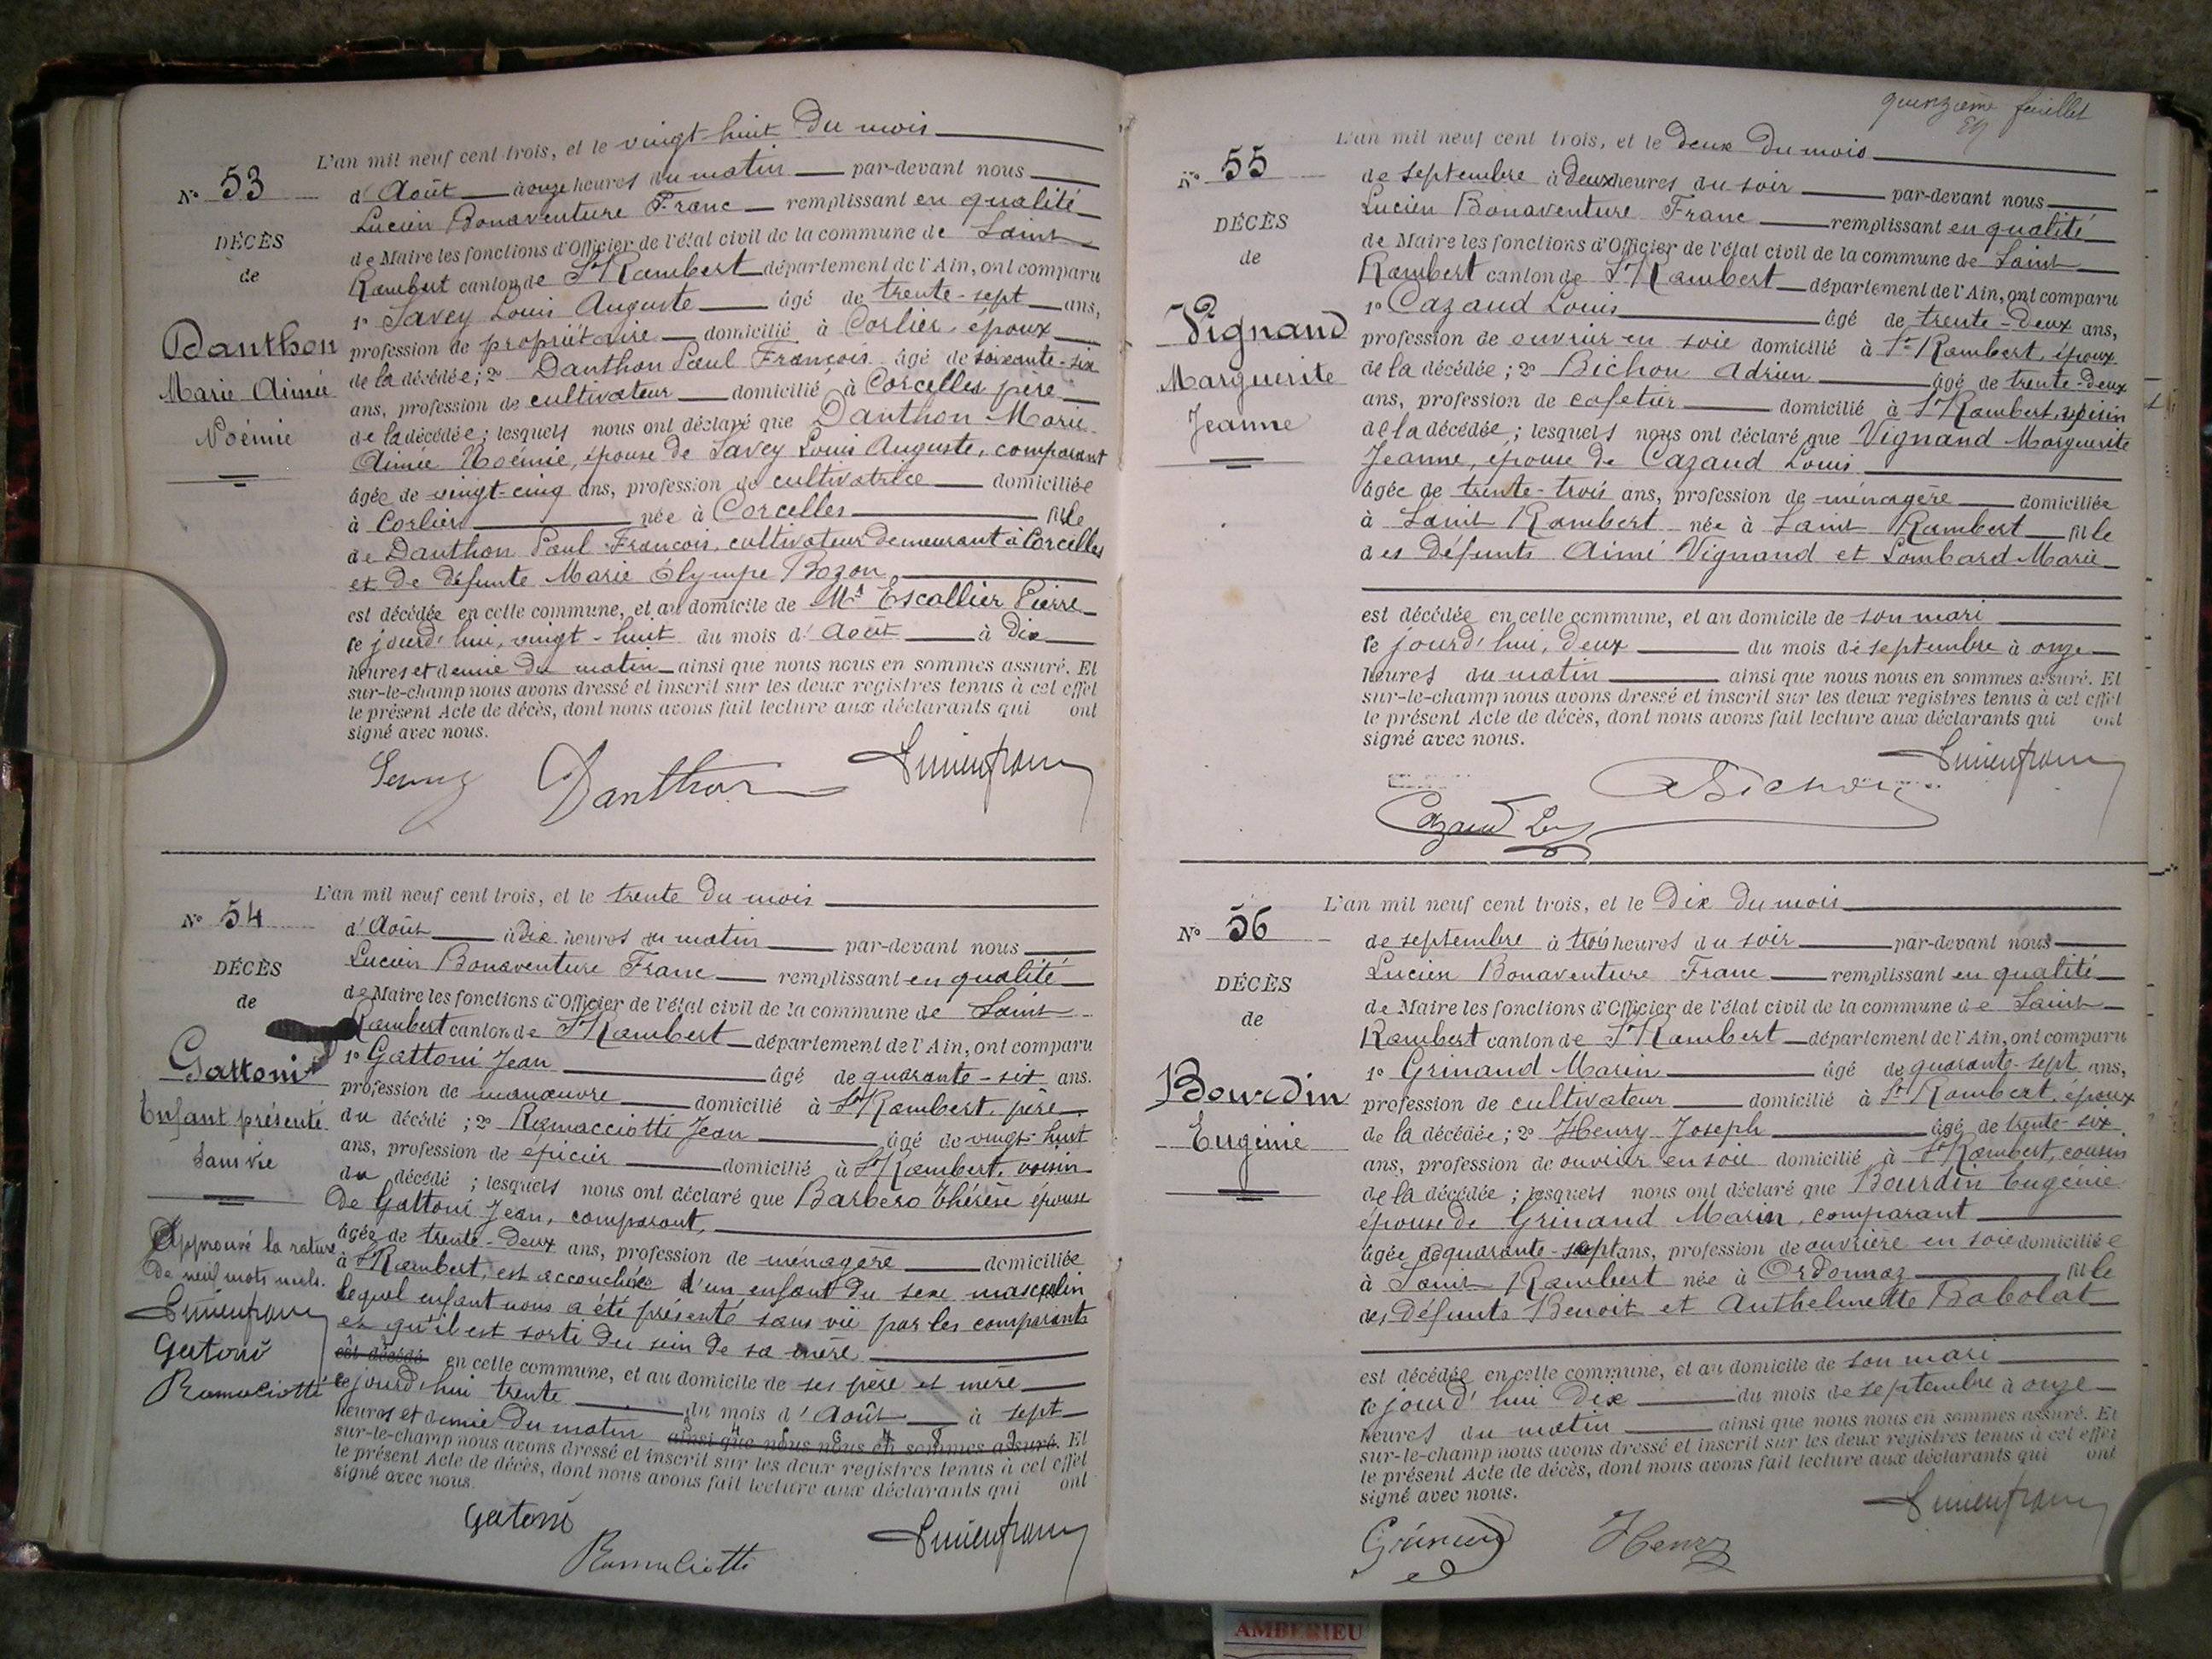 N° 53
DÉCÈS
de
Danthon
Marie Aimée
Noémie
L'an mil neuf cent trois, et le vingt huit du mois
d'Août à onze heures du matin par-devant nous
Lucien Bonaventure Franc remplissant en qualité
de Maire les fonctions d'Officier de l'état civil de la commune de Saint
Rambert canton de St Rambert département de l'Ain, ont comparu
1° Savey Louis Auguste âgé de trente-sept ans,
profession de propriétaire domicilié à Corlier, époux
de la décédée; 2° Danthon Paul François âgé de soixante-six
ans, profession de cultivateur domicilié à Corcelles père
de la décédée; lesquels nous ont déclaré que Danthon Marie
Aimée Noémie, épouse de Savey Louis Auguste, comparant
âgée de vingt-cinq ans, profession de cultivatrice domiciliée
à Corlier née à Corcelles fille
de Danthon Paul François, cultivateur demeurant à Corcelles
et de défunte Marie Olympe Bozon
est décédée en cette commune, et au domicile de Mr Escallier Pierre
ce jourd'hui, vingt-huit du mois d'Août à dix
heures et demie du matin ainsi que nous nous en sommes assuré. Et
sur-le-champ nous avons dressé et inscrit sur les deux registres tenus à cet effet
le présent Acte de décès, dont nous avons fait lecture aux déclarants qui ont
signé avec nous.
Danthon Lucien franc
N° 54
DÉCÈS
de
Gattoni
Enfant présenté
sans vie
Approuvé la rature
de neuf mots nuls.
Lucien franc
Gatoni
Ramaciotti
L'an mil neuf cent trois, et le trente du mois
d'Août à dix heures du matin par-devant nous
Lucien Bonaventure Franc remplissant en qualité
de Maire les fonctions d'Officier de l'état civil de la commune de Saint
Rambert canton de St Rambert département de l'Ain, ont comparu
1° Gattoni Jean âgé de quarante-six ans.
profession de manœuvre domicilié à St Rambert, père
du décédé; 2° Ramacciotti Jean âgé de vingt-huit
ans, profession de épicier domicilié à St Rambert, voisin
du décédé; lesquels nous ont déclaré que Barbero Thérèse épouse
de Gattoni Jean, comparant,
âgée de trente-deux ans, profession de ménagère domiciliée
à St Rambert, est accouchée d'un enfant du sexe masculin
lequel enfant nous a été présenté sans vie par les comparants
et qu'il est sorti du sein de sa mère
est décédé en cette commune, et au domicile de ses père et mère
ce jourd'hui trente du mois d'Août à sept
heures et demie du matin ainsi que nous nous en sommes assuré. Et
sur-le-champ nous avons dressé et inscrit sur les deux registres tenus à cet effet
le présent Acte de décès, dont nous avons fait lecture aux déclarants qui ont
signé avec nous.
Gatoni
Ramaciotti Lucien franc
quinzième feuillet
N° 55
DÉCÈS
de
Vignand
Marguerite
Jeanne
L'an mil neuf cent trois, et le deux du mois
de septembre à deux heures du soir par-devant nous
Lucien Bonaventure Franc remplissant en qualité
de Maire les fonctions d'Officier de l'état civil de la commune de Saint
Rambert canton de St Rambert département de l'Ain, ont comparu
1° Cazaud Louis âgé de trente-deux ans,
profession de ouvrier en soie domicilié à St Rambert, époux
de la décédée; 2° Bichon Adrien âgé de trente-deux
ans, profession de cafetier domicilié à St Rambert, voisin
de la décédée; lesquels nous ont déclaré que Vignand Marguerite
Jeanne, épouse de Cazaud Louis
âgée de trente-trois ans, profession de ménagère domiciliée
à Saint Rambert née à Saint Rambert fille
des défunts Aimé Vignand et Lombard Marie
est décédée en cette commune, et au domicile de son mari
ce jourd'hui, deux du mois de septembre à onze
heures du matin ainsi que nous nous en sommes assuré. Et
sur-le-champ nous avons dressé et inscrit sur les deux registres tenus à cet effet
le présent Acte de décès, dont nous avons fait lecture aux déclarants qui ont
signé avec nous.
Lucien franc
A Bichon
Cazaud
N° 56
DÉCÈS
de
Bourdin
Eugénie
L'an mil neuf cent trois, et le dix du mois
de septembre à trois heures du soir par-devant nous
Lucien Bonaventure Franc remplissant en qualité
de Maire les fonctions d'Officier de l'état civil de la commune de Saint
Rambert canton de St Rambert département de l'Ain, ont comparu
1° Grinand Marin âgé de quarante-sept ans,
profession de cultivateur domicilié à St Rambert, époux
de la décédée; 2° Henry Joseph âgé de trente-six
ans, profession de ouvrier en soie domicilié à St Rambert, cousin
de la décédée; lesquels nous ont déclaré que Bourdin Eugénie
épouse de Grinand Marin, comparant
âgée de quarante-sept ans, profession de ouvrière en soie domiciliée
à Saint Rambert née à Ordonnaz fille
des défunts Benoit et Anthelmette Babolat
est décédée en cette commune, et au domicile de son mari
ce jourd'hui dix du mois de septembre à onze
heures du matin ainsi que nous nous en sommes assuré. Et
sur-le-champ nous avons dressé et inscrit sur les deux registres tenus à cet effet
le présent Acte de décès, dont nous avons fait lecture aux déclarants qui ont
signé avec nous.
Lucien franc
Grinand Henry
AMBERIEU